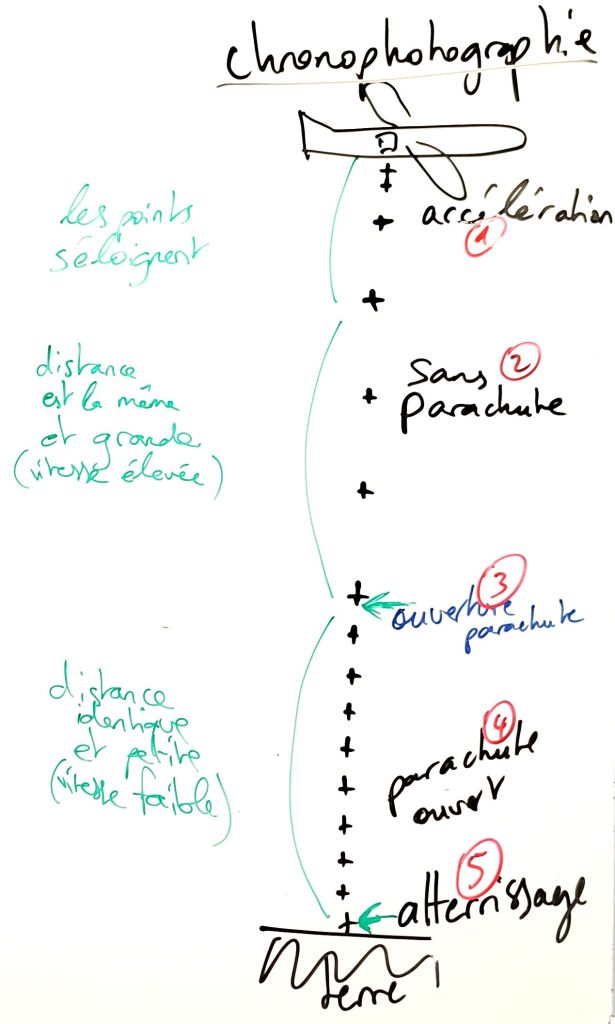 chronophotographie
accélération
1
les points
s'éloignent
distance
est la même
et grande
(vitesse élevée)
sans
parachute
2
3
ouverture
parachute
distance
identique
et petite
(vitesse faible)
4
parachute
ouvert
5
atterrissage
terre